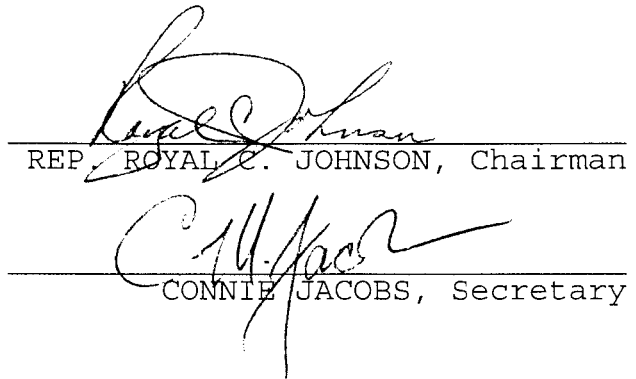 Royal C Johnson
REP. ROYAL C. JOHNSON, Chairman
C. M. Jacobs
CONNIE JACOBS, Secretary